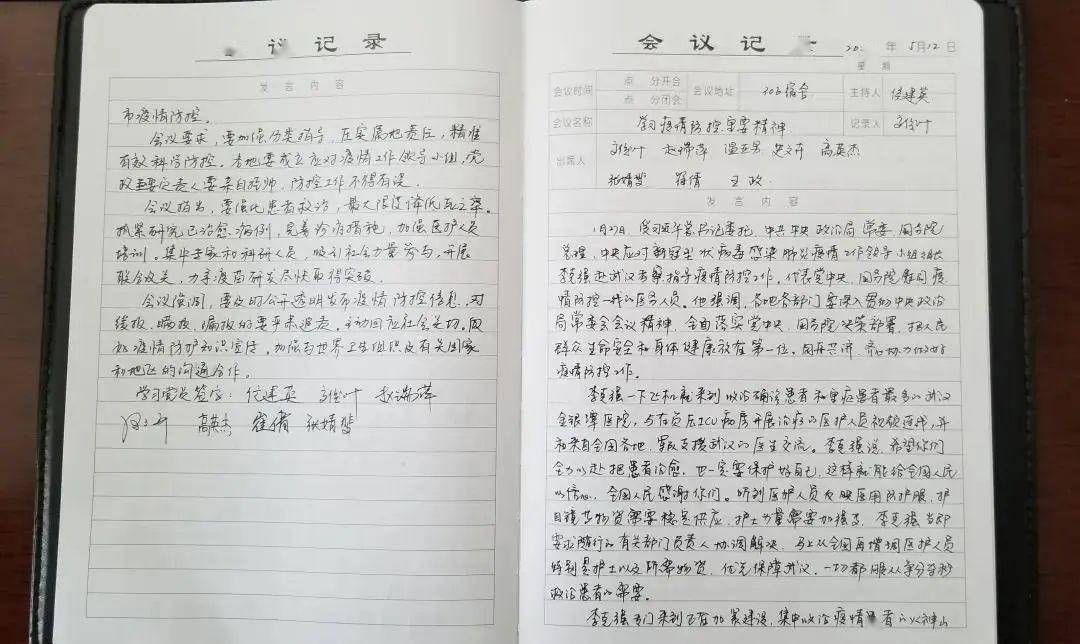 议记录
发言内容
市疫情防控。
会议要求,要加强分类指导,压实属地责任,精准
有效科学防控。各地要成立应对疫情工作领导小组,党
政主要负责人要亲自挂帅,防控工作不得有误。
会议指出,要强化患者救治,最大限度降低死亡率。
抓紧研究已治愈病例,完善诊疗措施,加强医护人员
培训。集中专家和科研人员,吸引社会力量参与,开展
联合攻关,力争疫苗研发尽快取得突破。
会议强调,要及时公开透明发布疫情防控信息,对
缓报、瞒报、漏报的要严肃追责。主动回应社会关切。
疫情防护知识宣传,加强与世界卫生组织及有关国家
和地区的沟通合作。
学习党员签字:
高英杰 崔倩 张婧
会议记
20 年5月12日
星期
会议时间 点 分开会 点 分闭会 会议地址 宿舍 主持人 侯建英
会议名称 学习疫情防控重要精神 记录人
出席人 赵瑞萍 高英杰
张婧 崔倩 王政
发言内容
1月27日,受习近平总书记委托,中共中央政治局常委、国务院
总理、中央应对新冠型状病毒感染肺炎疫情工作领导小组组长
李克强赴武汉考察指导疫情防控工作,代表党中央、国务院慰问疫
情防控一线的医务人员。他强调,各地各部门要深入贯彻中央政治
局常委会会议精神,全面落实党中央、国务院决策部署,把人民
群众生命安全和身体健康放在第一位,同舟共济,齐心协力做好
疫情防控工作。
李克强一下飞机就来到收治确诊患者和重症患者最多的武汉
金银潭医院,与在负压ICU病房开展治疗的医护人员视频连线,并
和来自全国各地、军队支援武汉的医生交流。李克强说,希望你们
全力以赴把患者治愈,也一定要保护好自己,这样就能给全国人民
以信心,全国人民感谢你们。听到医护人员反映医用防护服、护
目镜等物资需要稳定供应,护士力量需要加强等,李克强当即
要求随行的有关部门负责人协调解决,马上从全国再增调医护人员
特别是护士以及所需物资,优先保障武汉,一切都服从争分夺秒
救治患者的需要。
李克强专门来到正在加紧建设、集中收治疫情患者的火神山